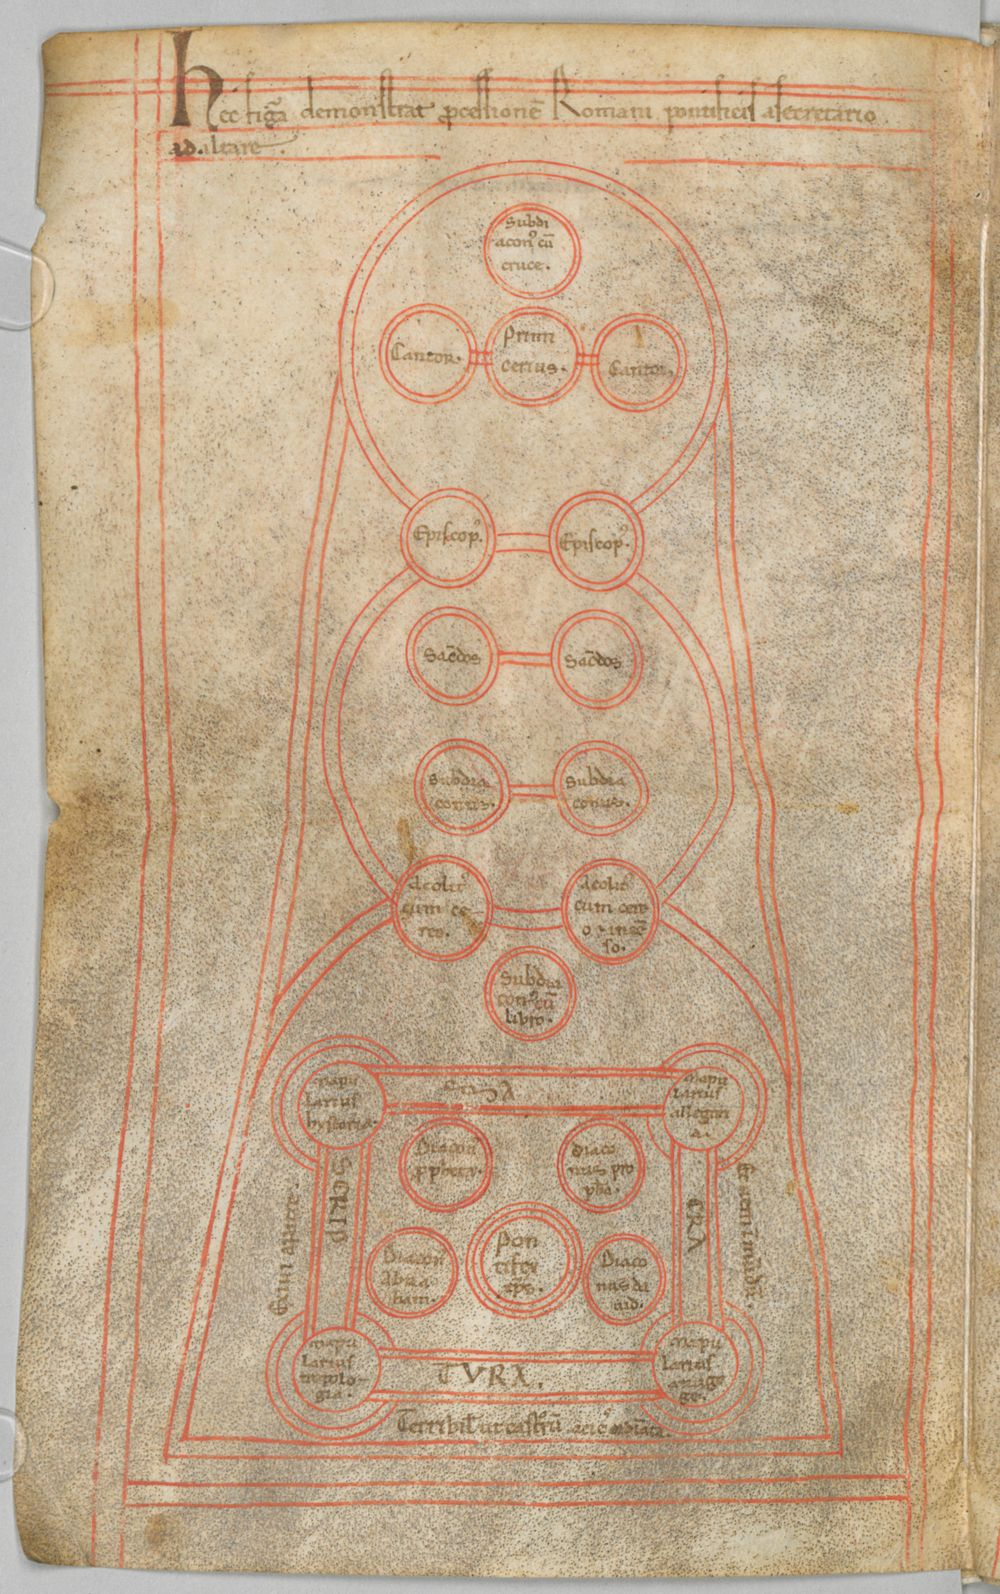 Hec figa demonstrat pcessionē Romani pontificis a secretario
ad altare
Subdi
acon᾿ cū
cruce.
Cantor.
Primi
cerius.
Cantor.
Episcop᾿.
Episcop᾿.
Sac̄dos
Sac̄dos
Subdia
conus.
Subdia
conus.
Acolit᾿
cum ce
reo.
Acolit᾿
cum cere
o & incē
so.
Subdia
con᾿ cū
libro.
Mapu
larius
hystoria.
Mapu
larius
allegori
a.
Diacon᾿
ppheta.
Diaco
nus pro
pha.
SCRIP
TVRA.
Exivi a patre.
Diacon᾿
Abra
ham.
Pon
tifex
xp̄s.
Diaco
nus da
uid.
Mapu
larius
tropolo
gia.
Mapu
larius
anago
ge.
Terribil᾿ ut castrū acies ordinata.